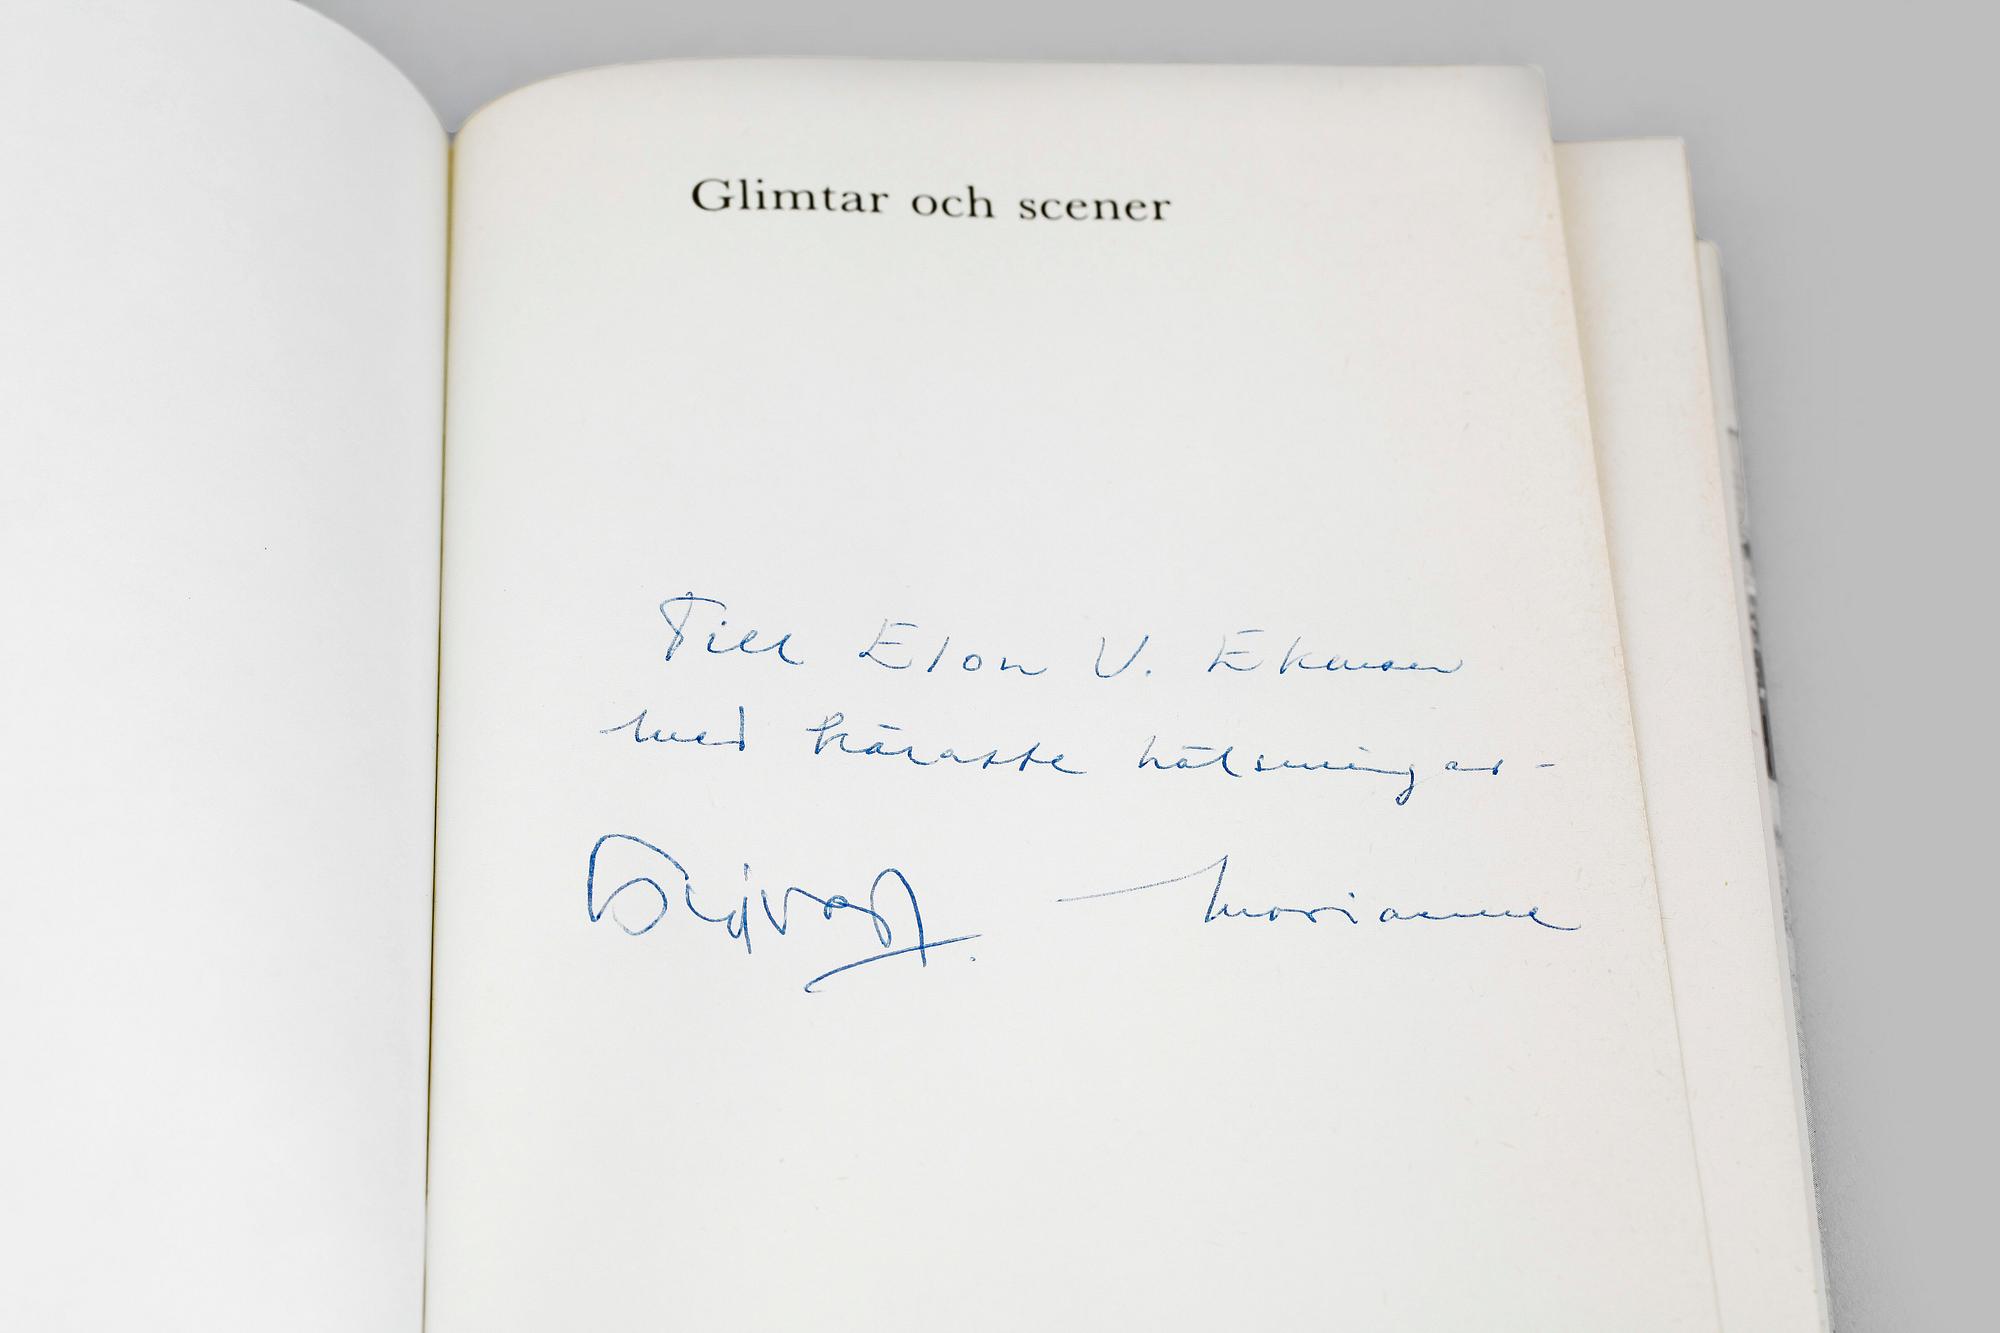 Glimtar och scener
Till Elon V. Ekman
med käraste hälsningar -
Marianne